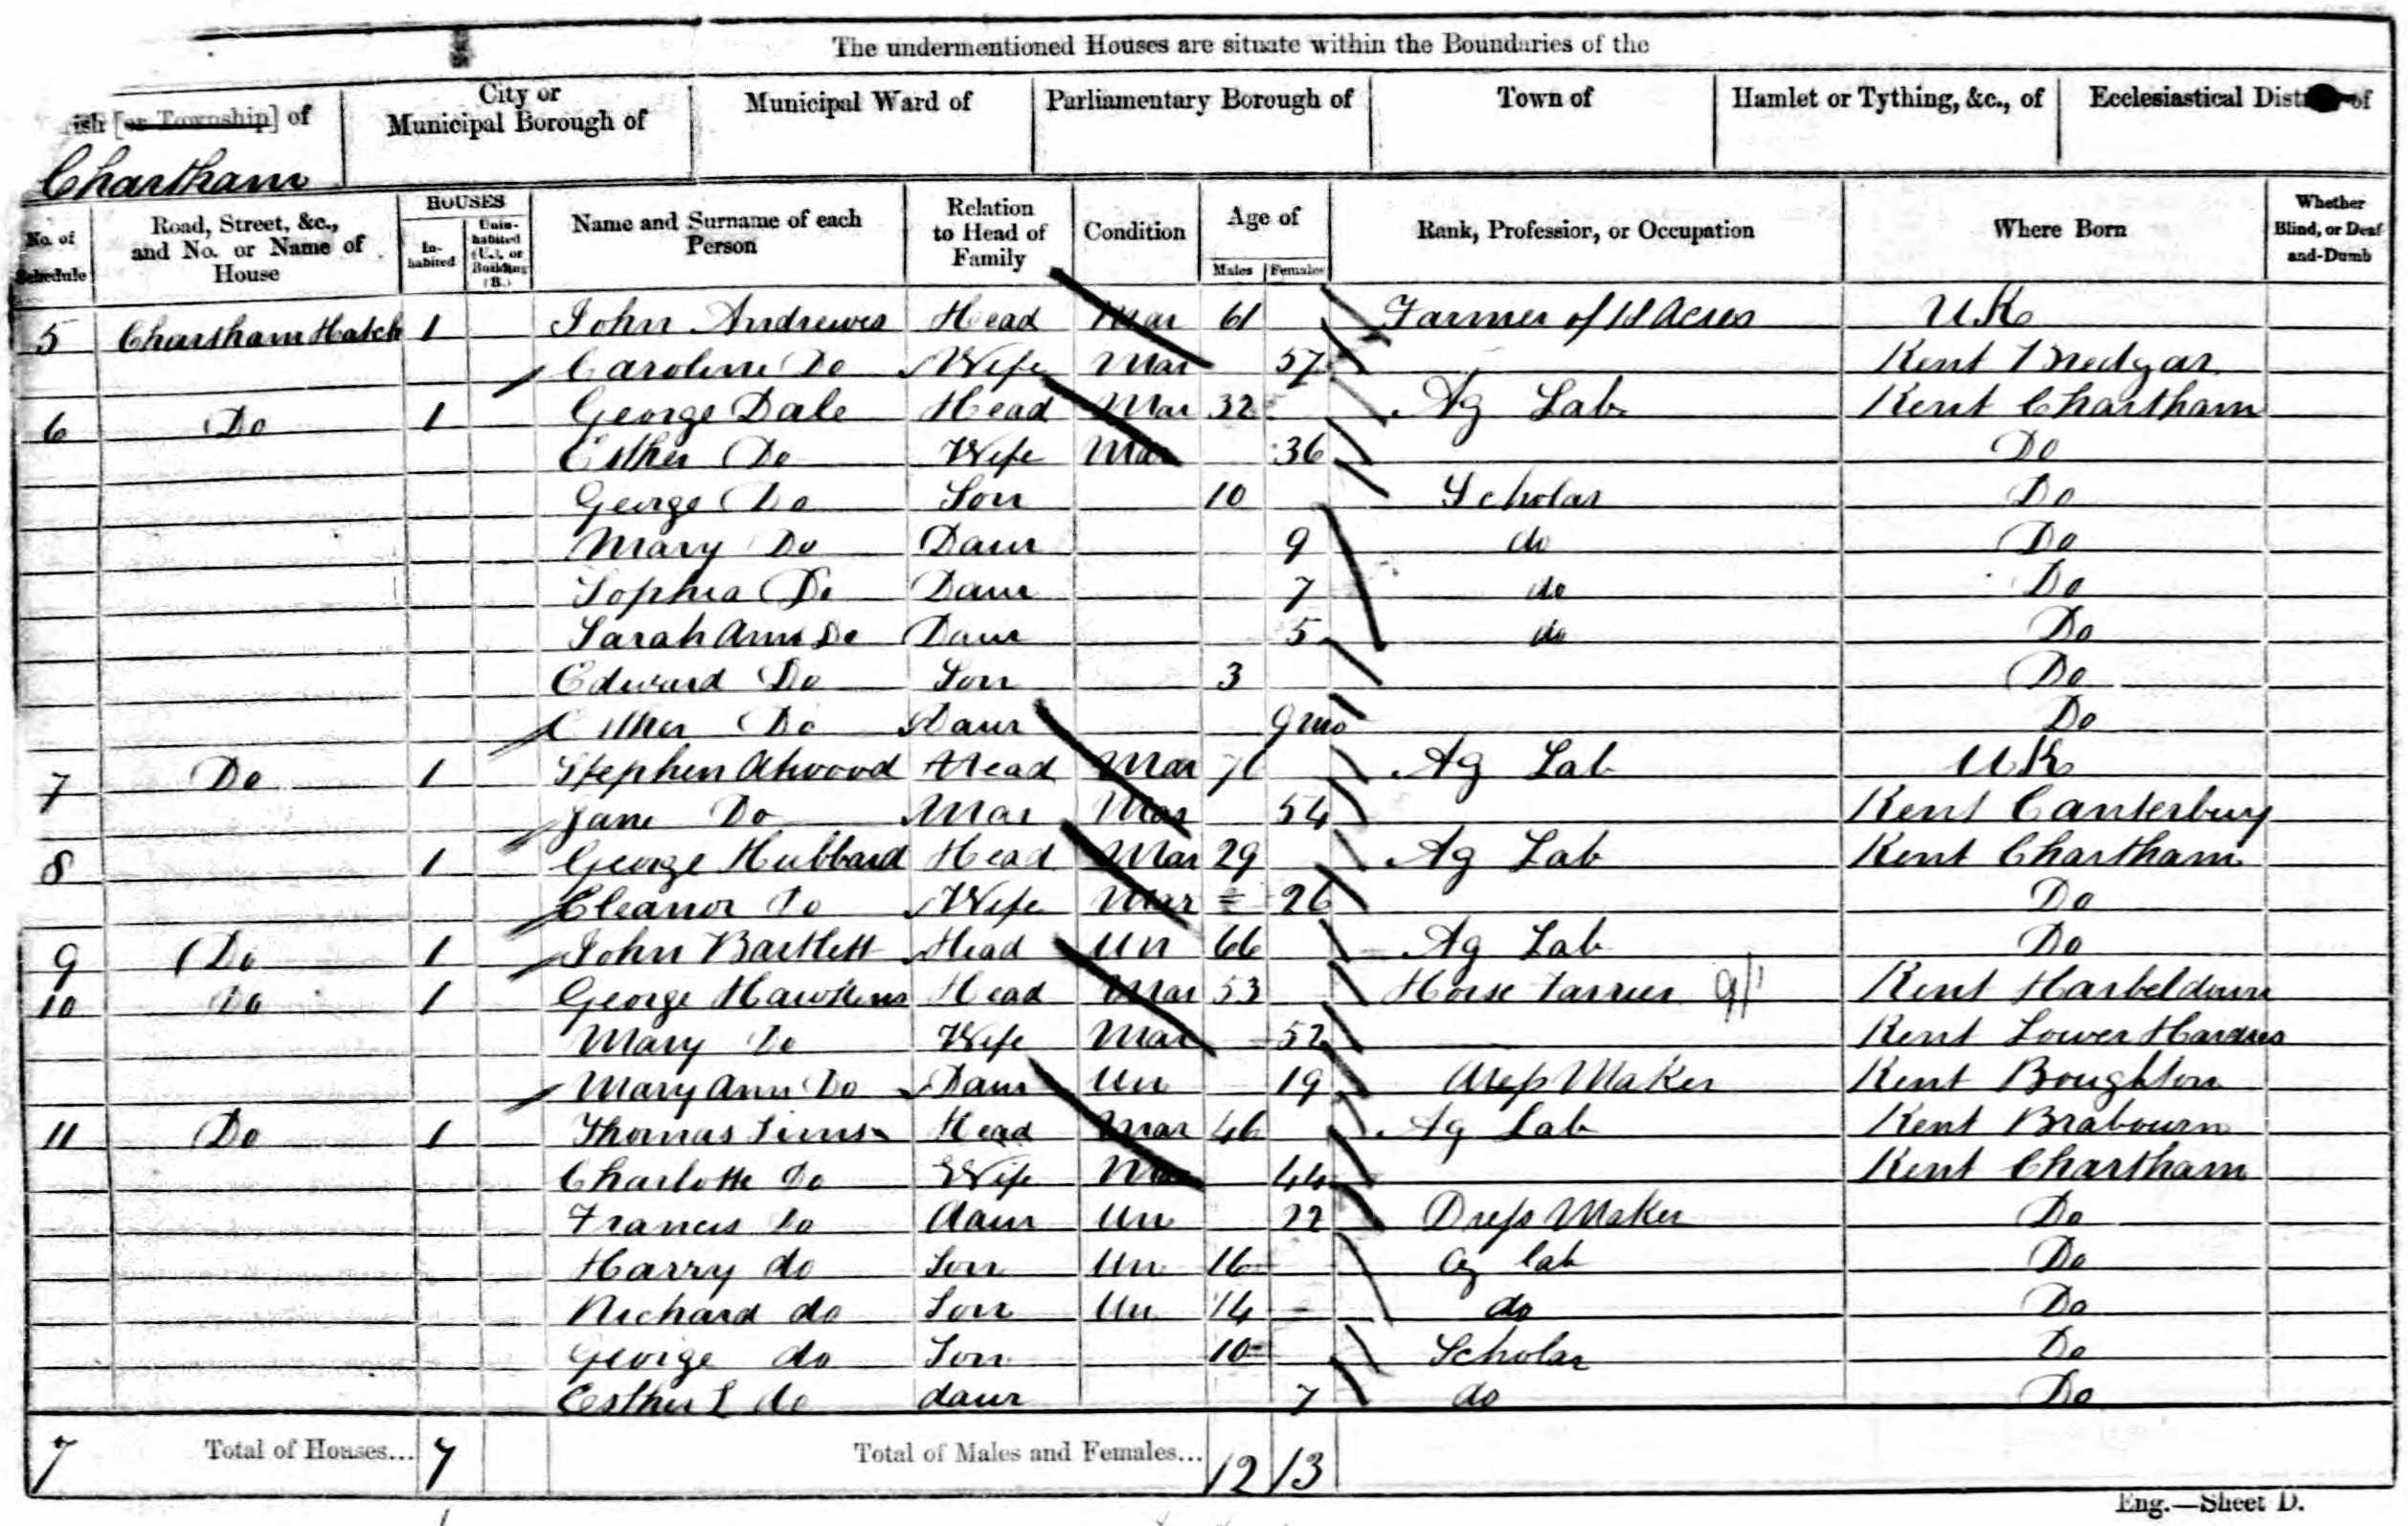 The undermentioned Houses are situate within the Boundaries of the
ish [or Township] of
City or Municipal Borough of
Municipal Ward of
Parliamentary Borough of
Town of
Hamlet or Tything, &c., of
Ecclesiastical District of
Chartham
No. of Schedule
Road, Street, &c., and No. or Name of House
HOUSES
In-habited
Unin-habited (U.), or Building (B.)
Name and Surname of each Person
Relation to Head of Family
Condition
Age of
Males
Females
Rank, Profession, or Occupation
Where Born
Whether Blind, or Deaf-and-Dumb
5 Chartham Hatch 1 John Andrewes Head Mar 61 Farmer of Acres UK
Caroline Do Wife Mar 57 Kent Bredgar
6 Do 1 George Dale Head Mar 32 Ag Lab Kent Chartham
Esther Do Wife Mar 36 Do
George Do Son 10 Scholar Do
Mary Do Daur 9 do Do
Sophia Do Daur 7 do Do
Sarah Ann Do Daur 5 do Do
Edward Do Son 3 Do
Esther Do Daur 9 mo Do
7 Do 1 Stephen Atwood Head Mar Ag Lab UK
Jane Do Mar Mar 54 Kent Canterbury
8 1 George Hubbard Head Mar 29 Ag Lab Kent Chartham
Eleanor Do Wife Mar 26 Do
9 Do 1 John Bartlett Head Un 66 Ag Lab Do
10 Do 1 George Hawkens Head Mar 53 Horse Farrier Kent Harbeldown
Mary Do Wife Mar 52 Kent Lower Hardres
Mary Ann Do Daur Un 19 Maker Kent Boughton
11 Do 1 Thomas Sims Head Mar 46 Ag Lab Kent Brabourn
Charlotte Do Wife Mar 44 Kent Chartham
Francis Do daur Un 22 Dress Maker Do
Harry do Son Un 16 Ag lab Do
Richard do Son Un 14 do Do
George do Son 10 Scholar Do
Esther L do daur 7 do Do
7 Total of Houses... 7 Total of Males and Females... 12 13
Eng.—Sheet D.